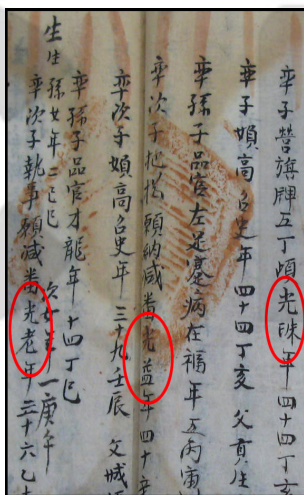 率子營旗牌五丁頉光珠年四十四丁亥
率子婦高召史年四十四丁亥 父貞
率孫子品官左足蹇病在福年五丙
率次子 願納咸番光益年四十
率次子婦高召史年三十九壬辰 父城
率孫子品官才龍年十四丁巳
生生孫女年二己巳 次女年一庚午
率次子執事願減番光老年三十六乙